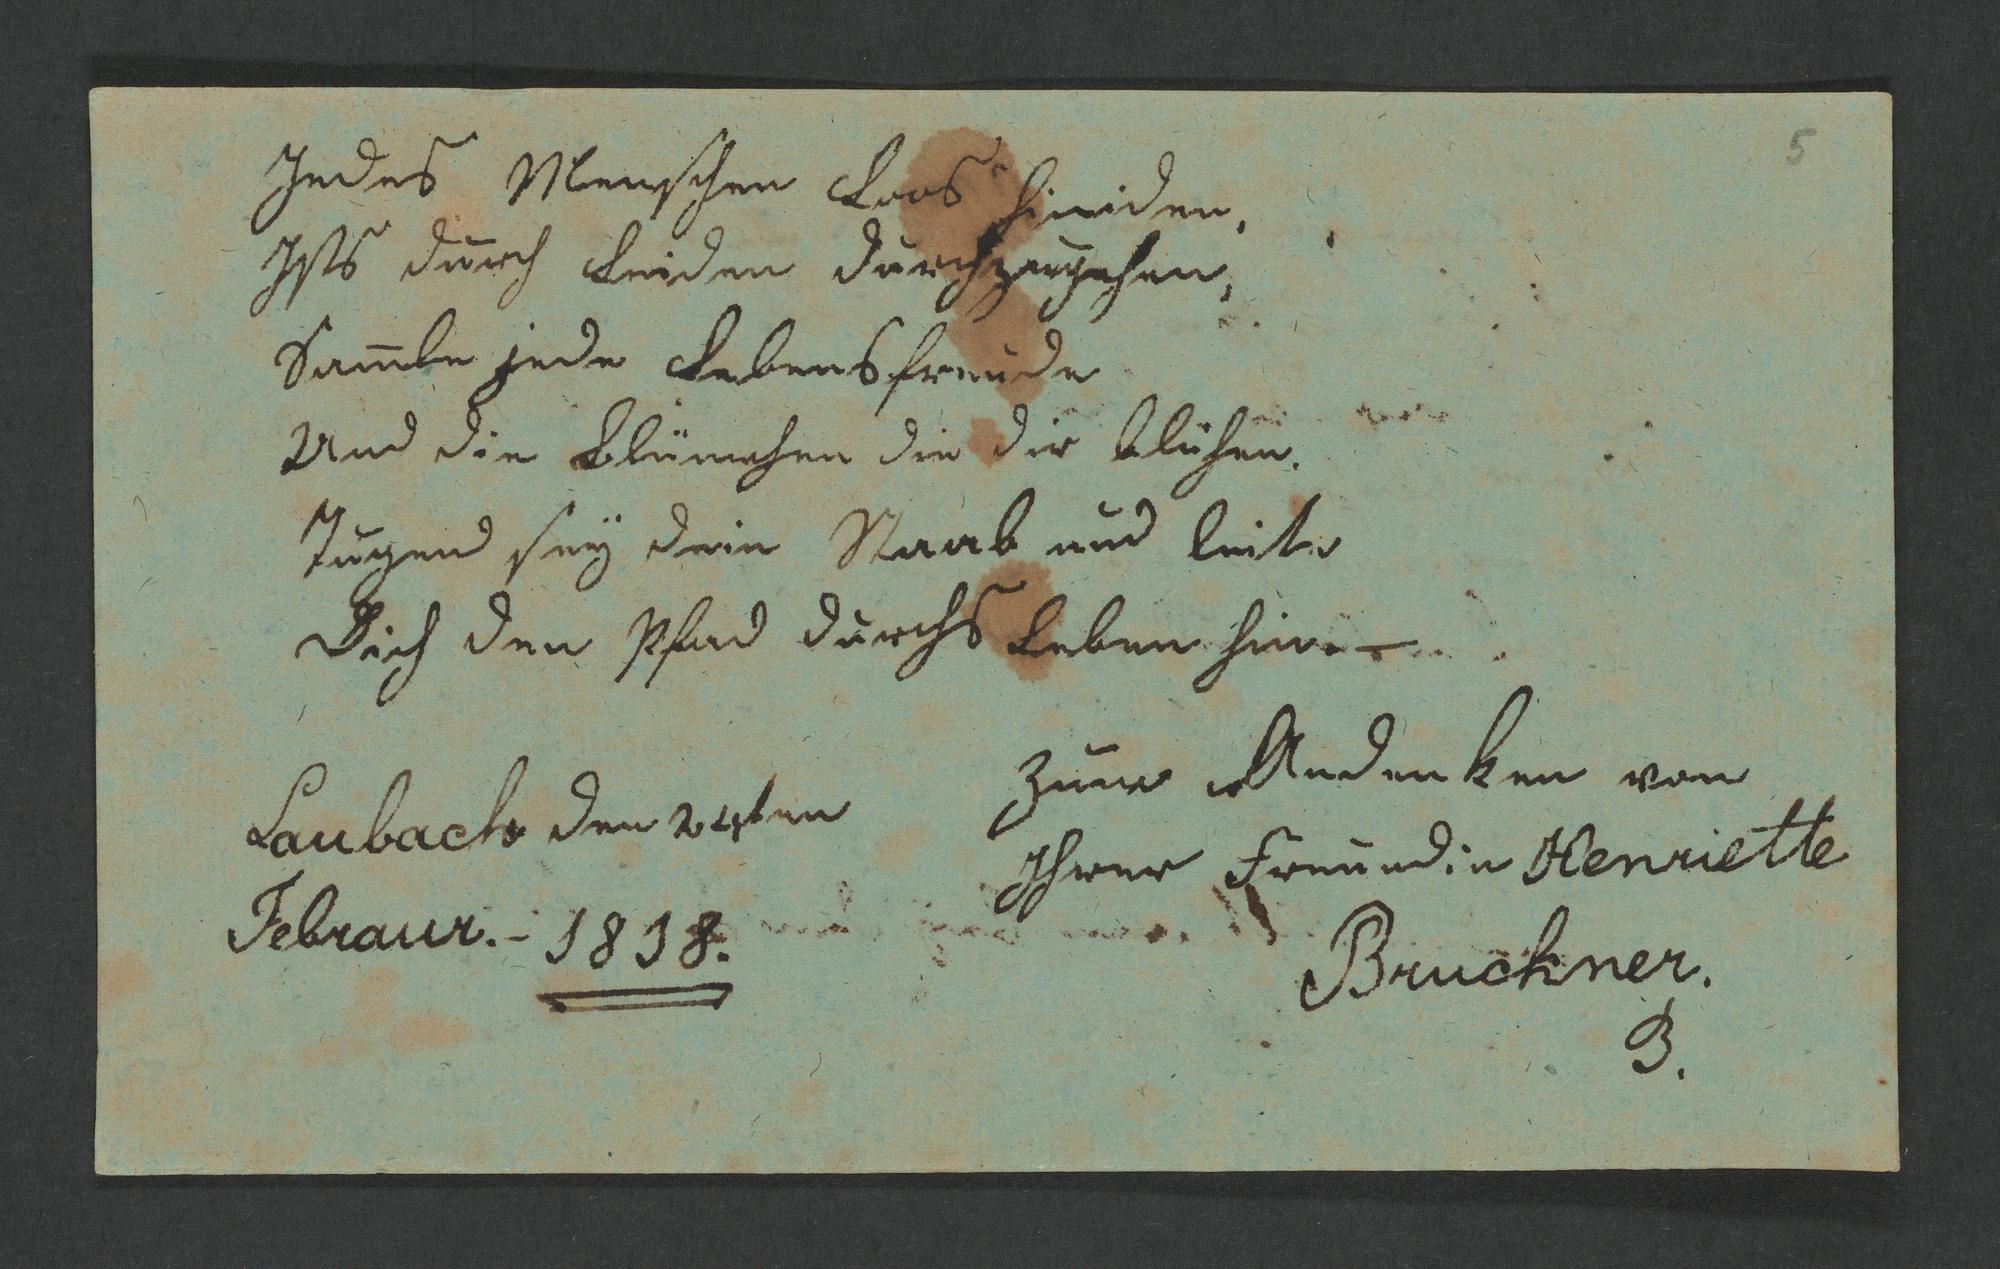 5
Jedes Menschen Loos hiniden,
Ists durch Leiden durchzugehen,
Sam̅le jede Lebensfreude
Und die Blümchen die dir blühen.
Tugend seÿ dein Staab und leite
Dich den Pfad durchs Leben hin. –
Laubach den 24ten
Febraur. - 1818.
Zum Andenken von
Ihrer Freundin Henriette
Bruckner.
B.